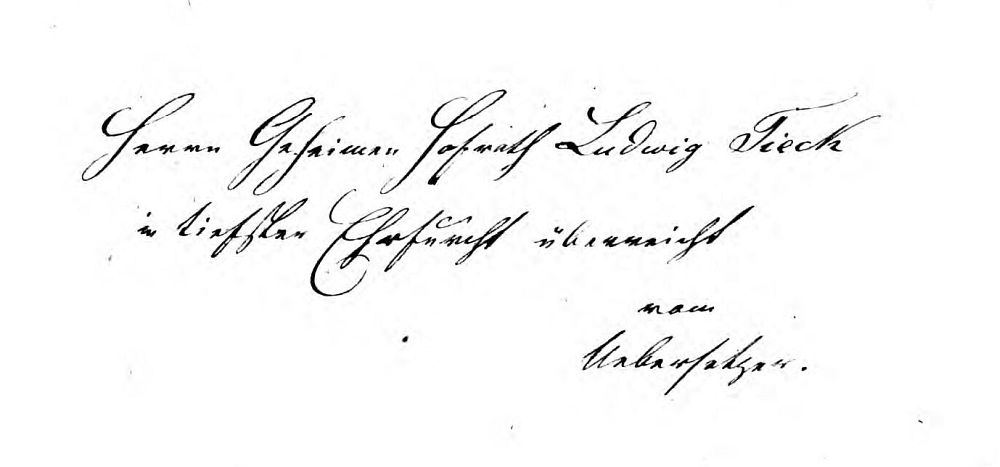 Herrn Geheimen Hofrath Ludwig Tieck
in tiefster Ehrfurcht überreicht
vom
Uebersetzer.